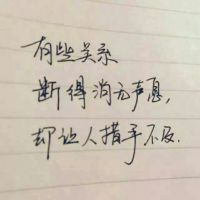 有些关系
断得消无声息,
却让人措手不及.